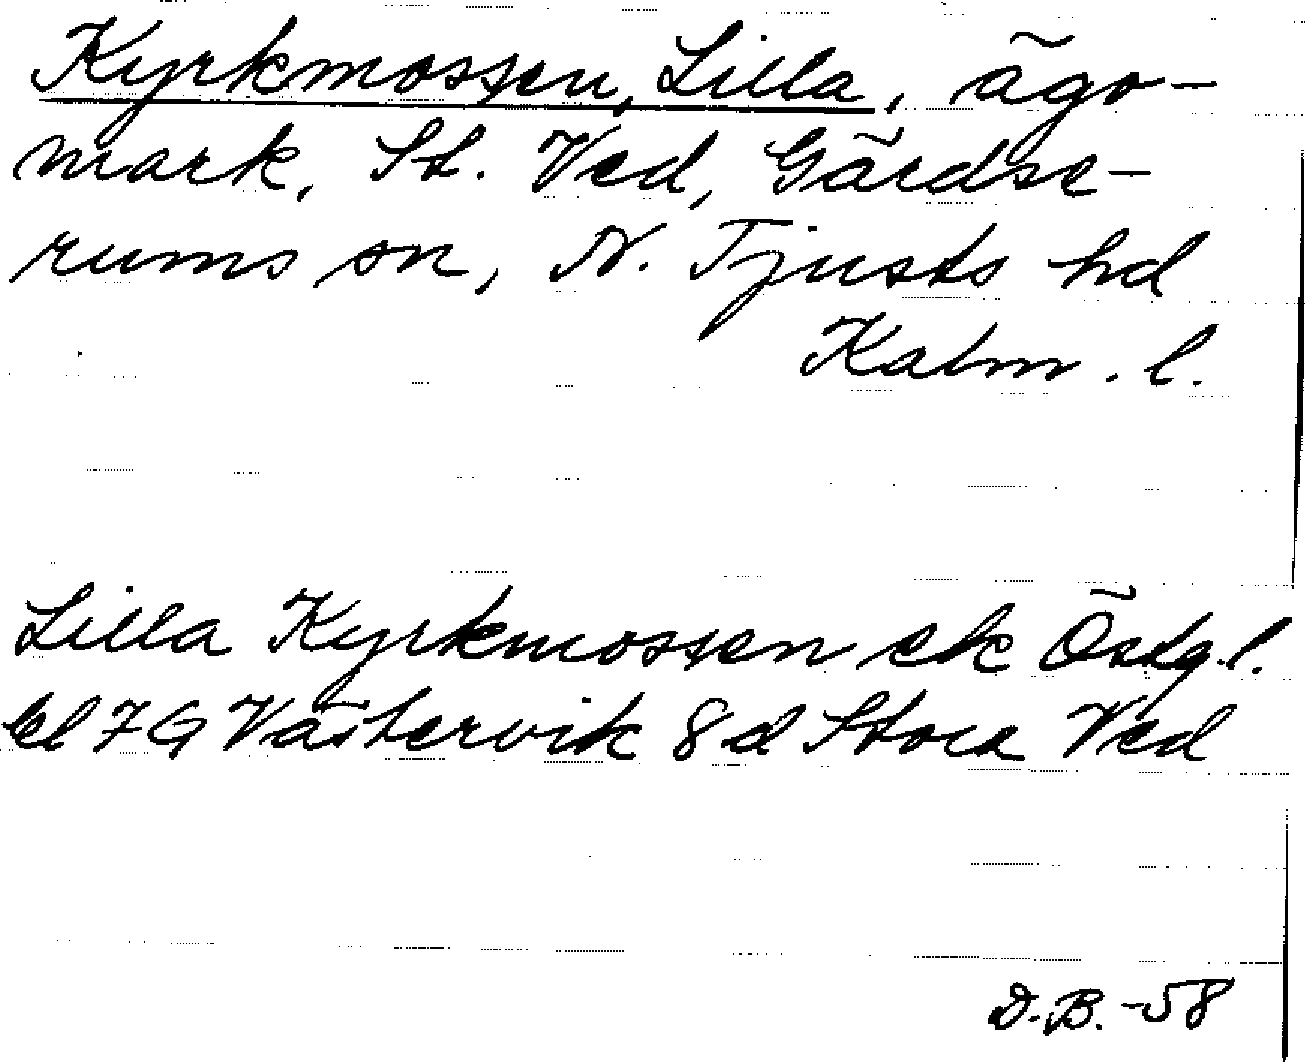 Kyrkmossen, Lilla, ägo-
mark, St. Ved, Gärdse-
rums sn, N. Tjusts hd
Kalm. l.
Lilla Kyrkmossen ek Östg. l.
bl 7 G Västervik 8 d Stora Ved
D.B. -58